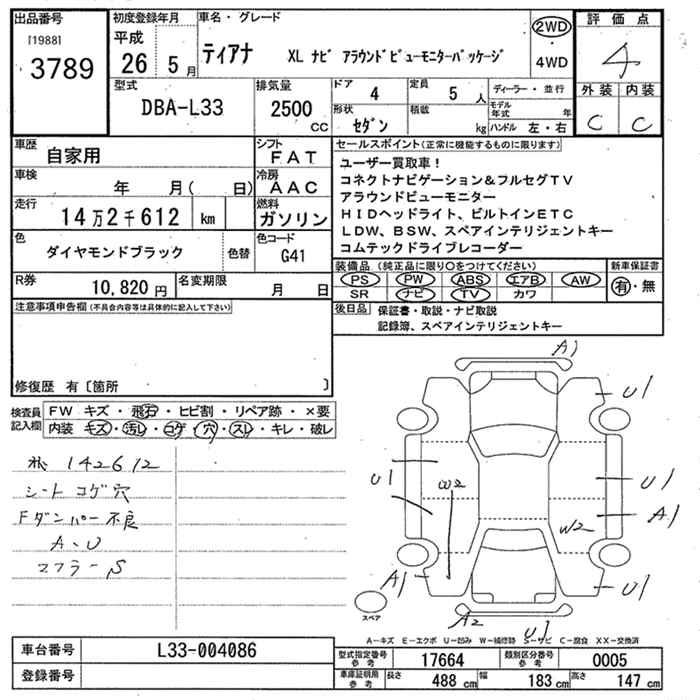 出品番号
[1988]
3789
初度登録年月
平成
26 5月
車名・グレード
ティアナ XL ナビ アラウンドビューモニターパッケージ
2WD
・
4WD
評価点
4
外装 内装
C C
型式
DBA-L33
排気量
2500
CC
ドア 4
定員 5人
形状 セダン
積載 kg
ディーラー・並行
モデル年式 年
ハンドル 左・右
車歴 自家用
シフト FAT
車検 年 月( 日)
冷房 AAC
走行 14万2千612 km
燃料 ガソリン
色 ダイヤモンドブラック 色替
色コード G41
R券 10,820円
名変期限 月 日
セールスポイント(正常に機能するものに限ります)
ユーザー買取車!
コネクトナビゲーション&フルセグTV
アラウンドビューモニター
HIDヘッドライト、ビルトインETC
LDW、BSW、スペアインテリジェントキー
コムテックドライブレコーダー
装備品(純正品に限り○をつけてください)
PS PW ABS エアB AW
SR ナビ TV カワ
新車保証書
有・無
後日品 保証書・取説・ナビ取説
記録簿、スペアインテリジェントキー
注意事項申告欄(不具合内容等は具体的に記入して下さい)
修復歴 有〔箇所 〕
検査員記入欄
FW キズ・飛石・ヒビ割・リペア跡・×要
内装 キズ・汚レ・コゲ・穴・スレ・キレ・破レ
142612
シート コゲ穴
Fダンパー不良
A・U
マフラーS
A1
U1
U1
W2
U1
A1
W2
A1
U1
A2
U1
スペア
A－キズ E－エクボ U－凹み W－補修跡 S－サビ C－腐食 XX－交換済
車台番号 L33-004086
登録番号
型式指定番号 参考 17664
類別区分番号 参考 0005
車庫証明用 参考 長さ 488 cm 幅 183 cm 高さ 147 cm